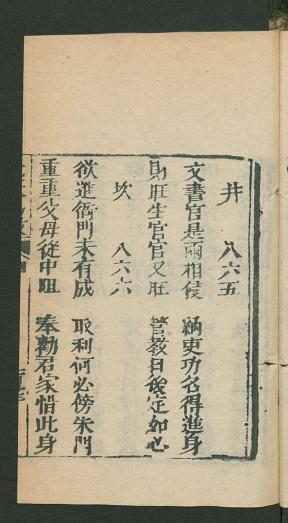 井 八六五
文書官是兩相侵 納吏功名得進身
財旺生官官又旺 管教日後定如心
坎 八六六
欲進衙門未有成 取利何必傍朱門
重重父母從中阻 奉勸君家惜此身